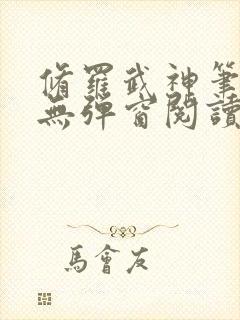 脩羅武神筆
無彈窗閱讀
馬會友